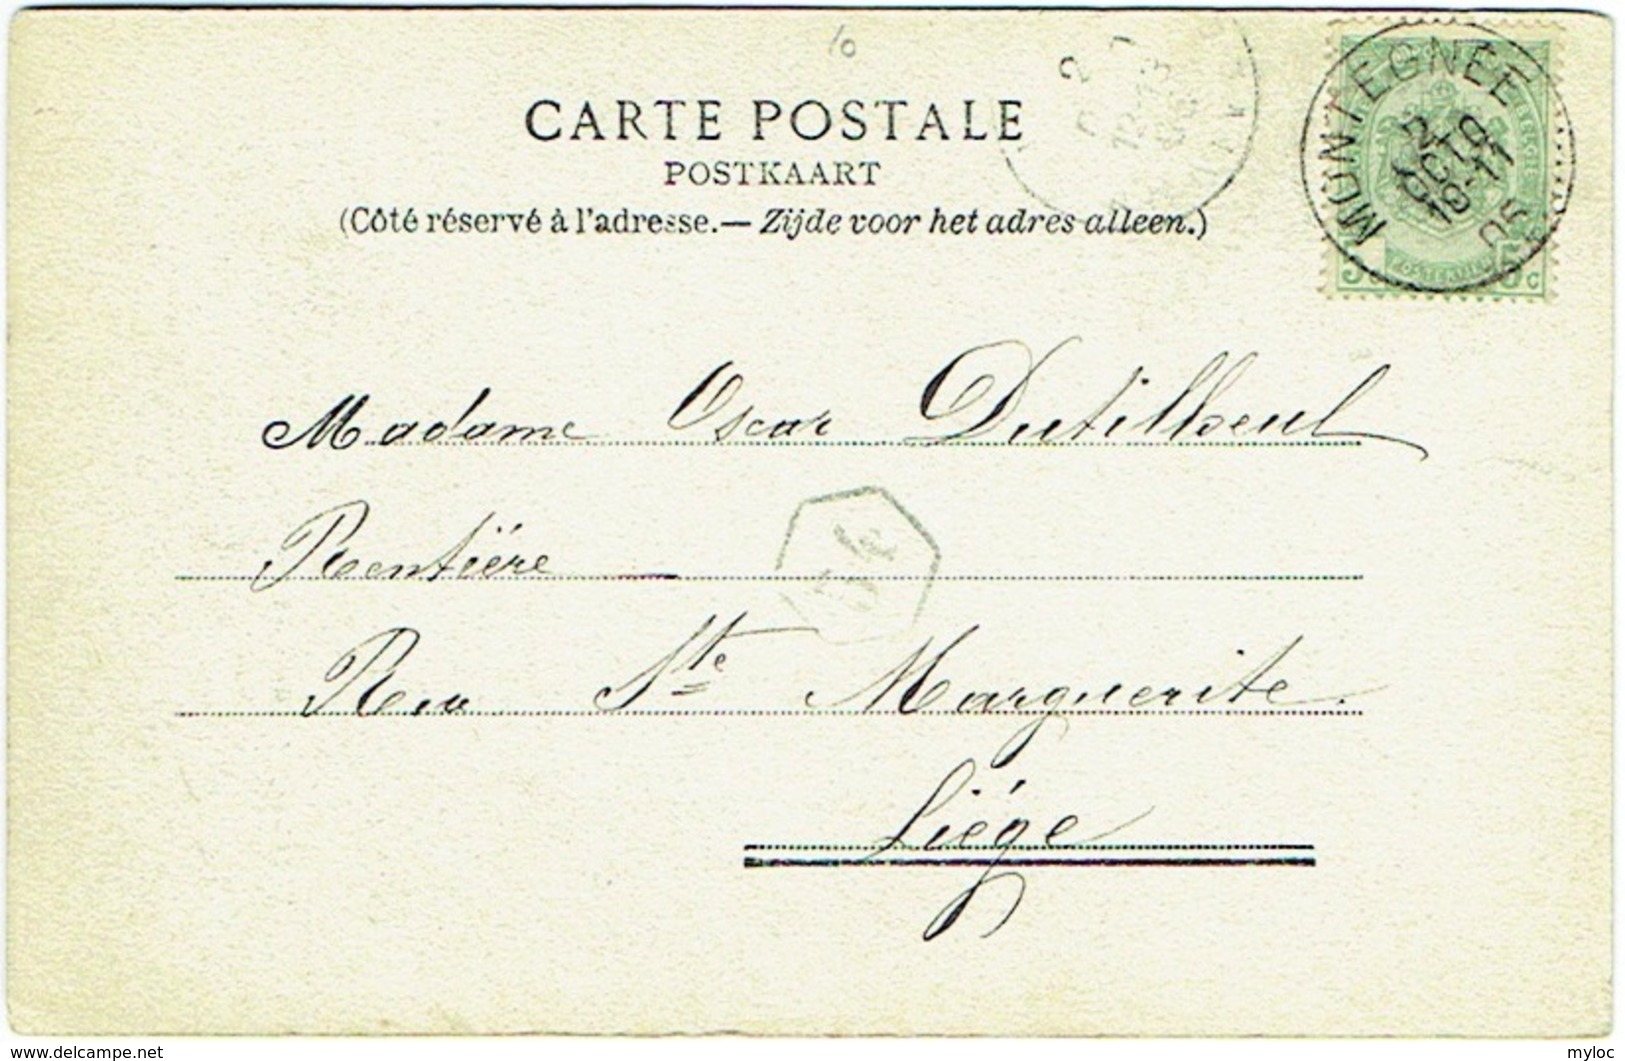 10
CARTE POSTALE
POSTKAART
(Côté réservé à l'adresse.— Zijde voor het adres alleen.)
MONTEGNEE
2 OCTO
10-11
05
5 C
Madame Oscar Dutilleul
Rentière
Rue Ste Marguerite.
Liége
www.delcampe.net
myloc